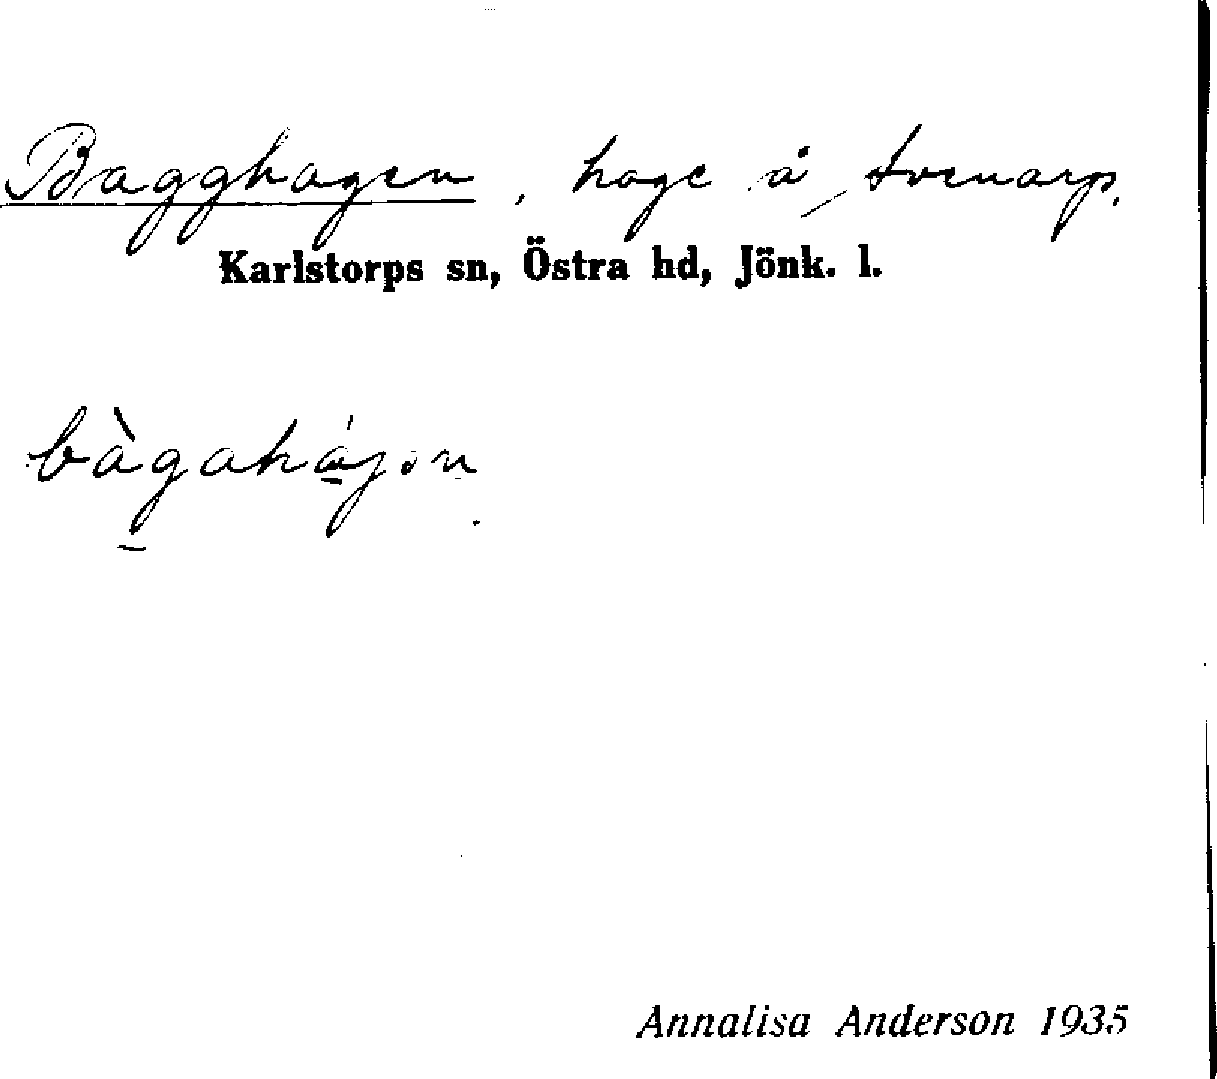 Bagghagen, hage å Svenarp.
Karlstorps sn, Östra hd, Jönk. l.
bàgahájen
Annalisa Anderson 1935